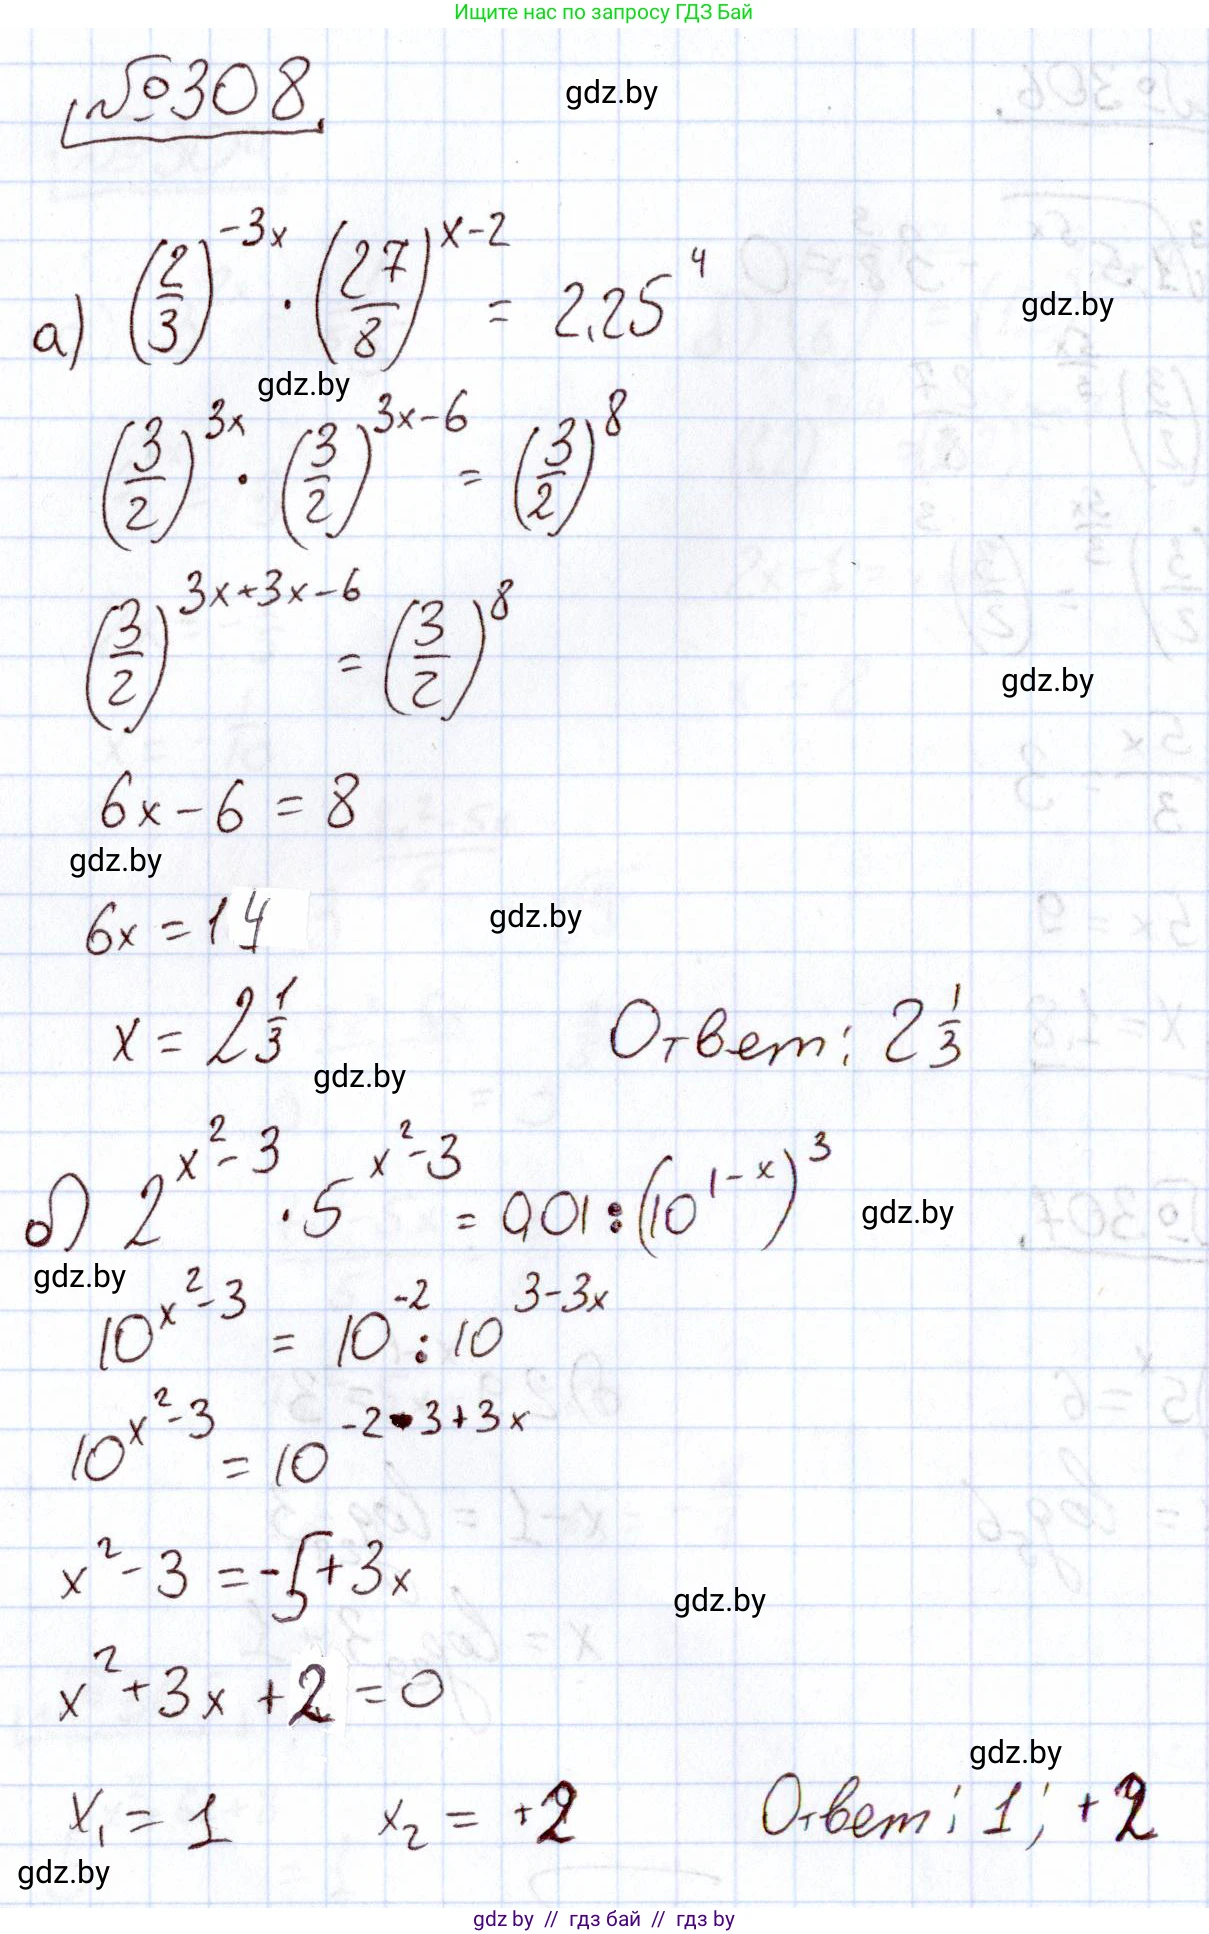 Ищите нас по запросу ГДЗ Бай
№308.
gdz.by
а) (2/3)^(-3x) · (27/8)^(x-2) = 2,25^4
gdz.by
gdz.by
(3/2)^(3x) · (3/2)^(3x-6) = (3/2)^8
(3/2)^(3x+3x-6) = (3/2)^8
gdz.by
6x - 6 = 8
gdz.by
6x = 14
gdz.by
x = 2 1/3
Ответ: 2 1/3
gdz.by
б) 2^(x²-3) · 5^(x²-3) = 0,01 : (10^(1-x))^3
gdz.by
gdz.by
10^(x²-3) = 10^(-2) : 10^(3-3x)
10^(x²-3) = 10^(-2-3+3x)
x² - 3 = -5 + 3x
gdz.by
x² + 3x + 2 = 0
gdz.by
x₁ = 1 x₂ = +2 Ответ: 1; +2
gdz.by
gdz by // гдз бай // гдз by